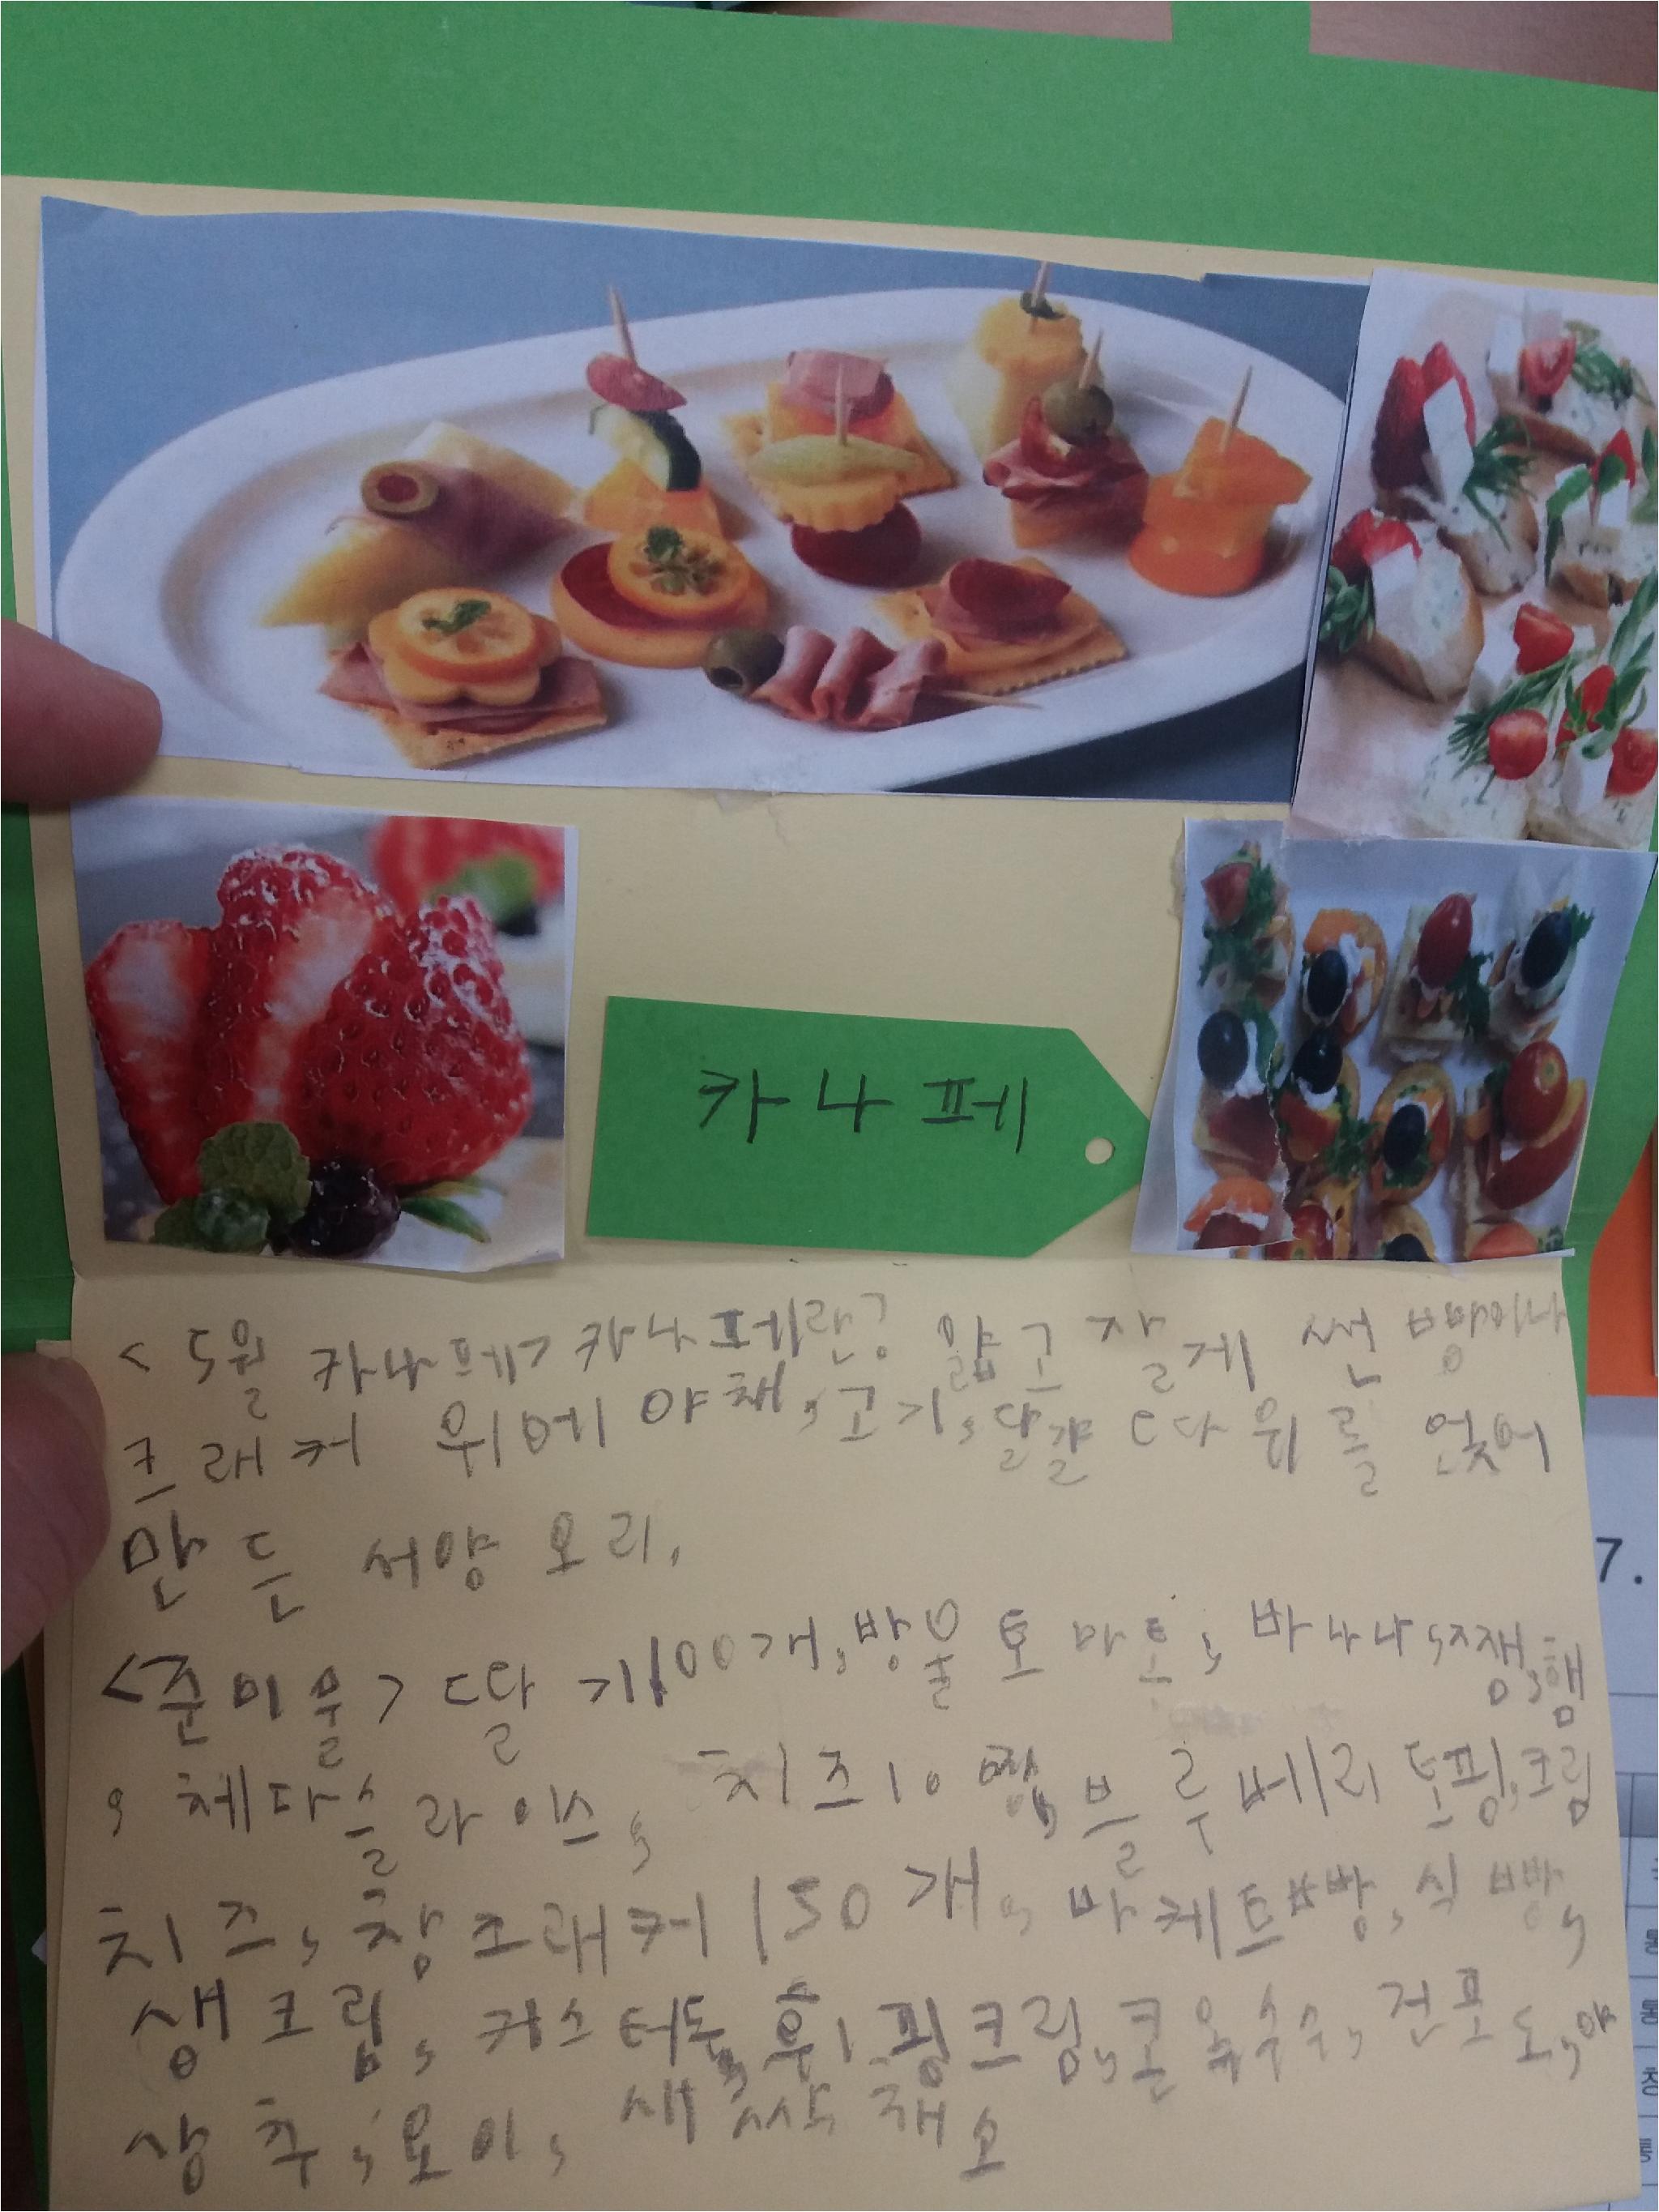 카나페
<5월 카나페> 카나페란? 얇고 잘게 썬 빵이나
크래커 위에 야채,고기,달걀 따위를 얹어
만든 서양 요리.
<준비물> 딸기100개,방울토마토, 바나나,쨈,햄
, 체다슬라이스, 치즈10 블루베리토핑,크림
치즈, 참크래커 150개, 바케트빵,식빵,
생크림, 커스터드, 휘핑크림,콘옥수수,건포도,야
상추,오이, 새싹채소
7.